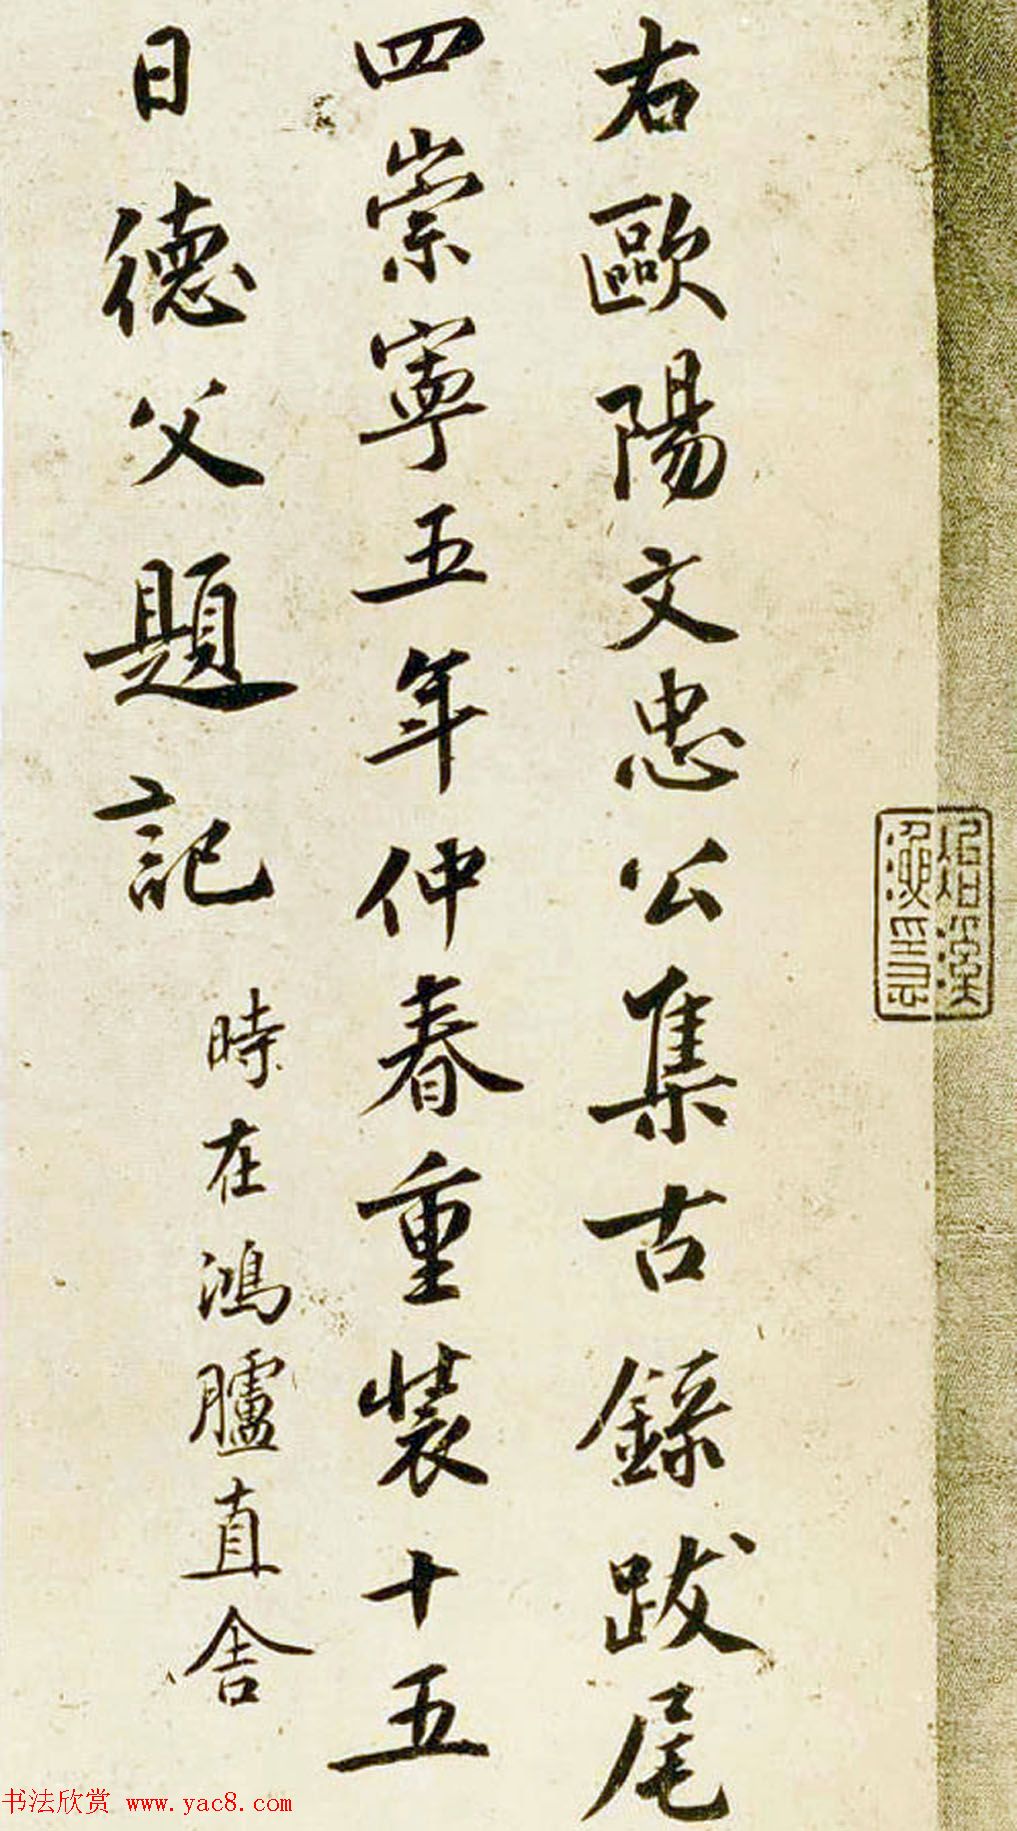 右歐陽文忠公集古錄跋尾
四崇寧五年仲春重裝十五
日德父題記
時在鴻臚直舍
书法欣赏 www.yac8.com